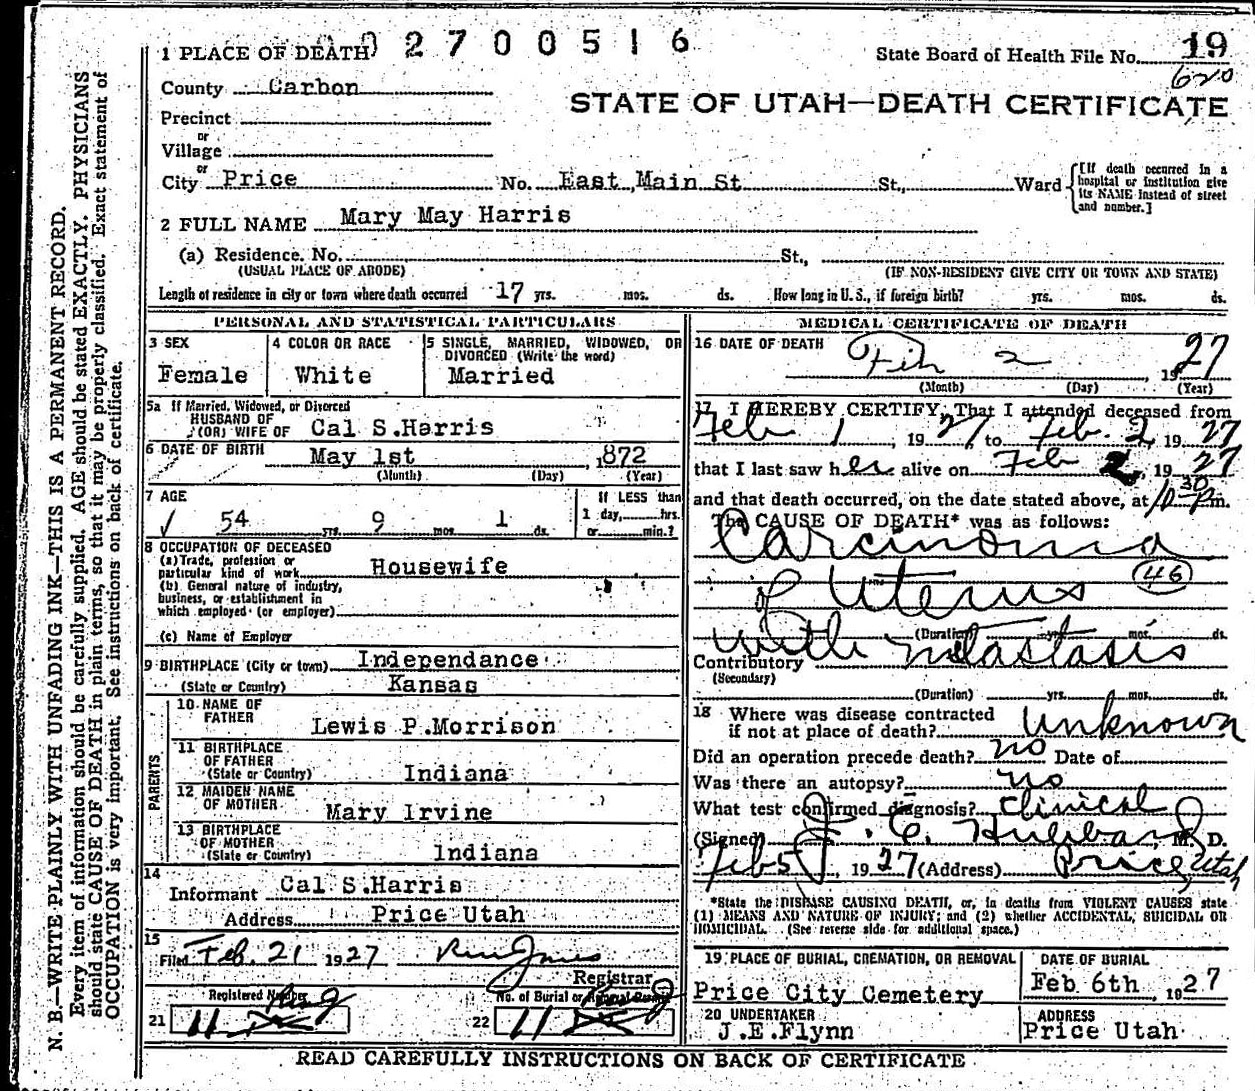 1 PLACE OF DEATH 0 2 7 0 0 5 1 6 State Board of Health File No. 19
620
County Carbon
STATE OF UTAH—DEATH CERTIFICATE
Precinct
or
Village
or
City Price No. East Main St St., Ward {[If death occurred in a hospital or institution give its NAME instead of street and number.]
2 FULL NAME Mary May Harris
(a) Residence. No. St.,
(USUAL PLACE OF ABODE) (IF NON-RESIDENT GIVE CITY OR TOWN AND STATE)
Length of residence in city or town where death occurred 17 yrs. mos. ds. How long in U. S., if foreign birth? yrs. mos. ds.
PERSONAL AND STATISTICAL PARTICULARS
3 SEX
Female
4 COLOR OR RACE
White
5 SINGLE, MARRIED, WIDOWED, OR
DIVORCED (Write the word)
Married
5a If Married, Widowed, or Divorced
HUSBAND OF
(OR) WIFE OF Cal S.Harris
6 DATE OF BIRTH May 1st , 1872
(Month) (Day) (Year)
7 AGE
54 yrs. 9 mos. 1 ds.
If LESS than
1 day, hrs.
or min.?
8 OCCUPATION OF DECEASED
(a) Trade, profession or
particular kind of work Housewife
(b) General nature of industry,
business, or establishment in
which employed (or employer)
(c) Name of Employer
9 BIRTHPLACE (City or town) Independance
(State or Country) Kansas
PARENTS
10 NAME OF
FATHER Lewis P.Morrison
11 BIRTHPLACE
OF FATHER
(State or Country) Indiana
12 MAIDEN NAME
OF MOTHER Mary Irvine
13 BIRTHPLACE
OF MOTHER
(State or Country) Indiana
14
Informant Cal S.Harris
Address Price Utah
15
Filed Feb. 21 1927
Registrar
Registered Number
21 11
No. of Burial or Removal Permit
22 11
MEDICAL CERTIFICATE OF DEATH
16 DATE OF DEATH Feb 2 , 1927
(Month) (Day) (Year)
17 I HEREBY CERTIFY, That I attended deceased from
Feb 1 , 1927 to Feb. 2, 1927
that I last saw her alive on Feb 2, 1927
and that death occurred, on the date stated above, at 10 30 P m.
The CAUSE OF DEATH* was as follows:
Carcinoma
of Uterus (46)
(Duration) yrs. mos. ds.
with metastasis
Contributory
(Secondary)
(Duration) yrs. mos. ds.
18 Where was disease contracted
if not at place of death? unknown
Did an operation precede death? no Date of
Was there an autopsy? no
What test confirmed diagnosis? clinical
(Signed) J. C. Hubbard, M. D.
Feb 5, 1927 (Address) Price, Utah
*State the DISEASE CAUSING DEATH, or, in deaths from VIOLENT CAUSES state
(1) MEANS AND NATURE OF INJURY; and (2) whether ACCIDENTAL, SUICIDAL OR
HOMICIDAL. (See reverse side for additional space.)
19 PLACE OF BURIAL, CREMATION, OR REMOVAL
Price City Cemetery
DATE OF BURIAL
Feb 6th , 1927
20 UNDERTAKER
J.E.Flynn
ADDRESS
Price Utah
READ CAREFULLY INSTRUCTIONS ON BACK OF CERTIFICATE
N. B.—WRITE PLAINLY WITH UNFADING INK—THIS IS A PERMANENT RECORD.
Every item of information should be carefully supplied. AGE should be stated EXACTLY. PHYSICIANS
should state CAUSE OF DEATH in plain terms, so that it may be properly classified. Exact statement of
OCCUPATION is very important. See instructions on back of certificate.